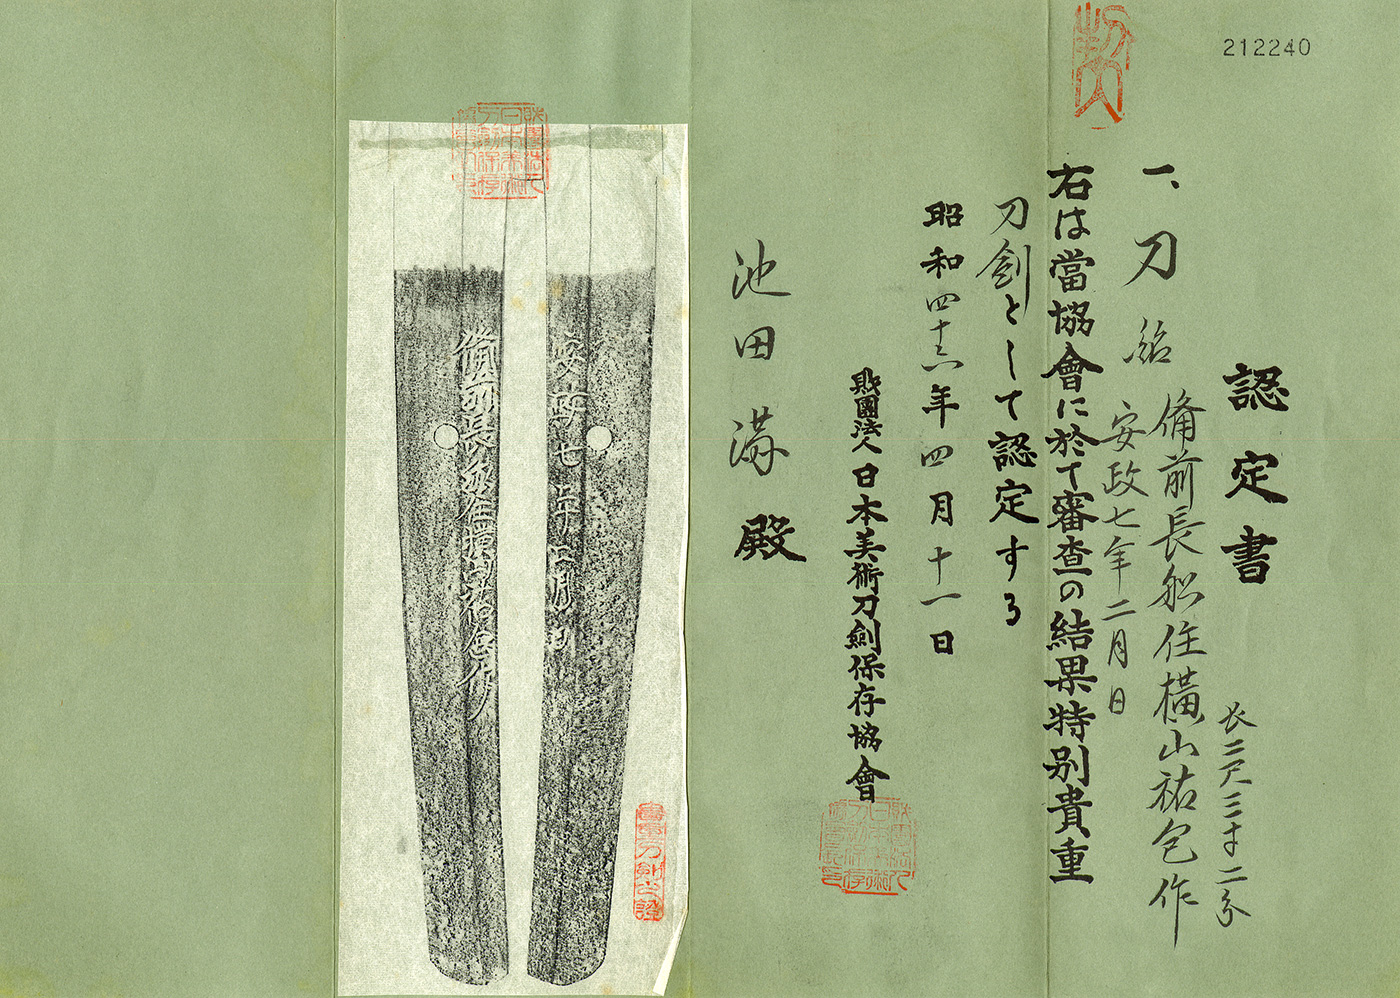 212240
認定書
長二尺三寸二分
一、刀 銘 備前長船住横山祐包作
安政七年二月日
右は當協會に於て審査の結果特別貴重
刀剣として認定する
昭和四十六年四月十一日
財團法人日本美術刀劍保存協會
池田満殿
備前長船住横山祐包作